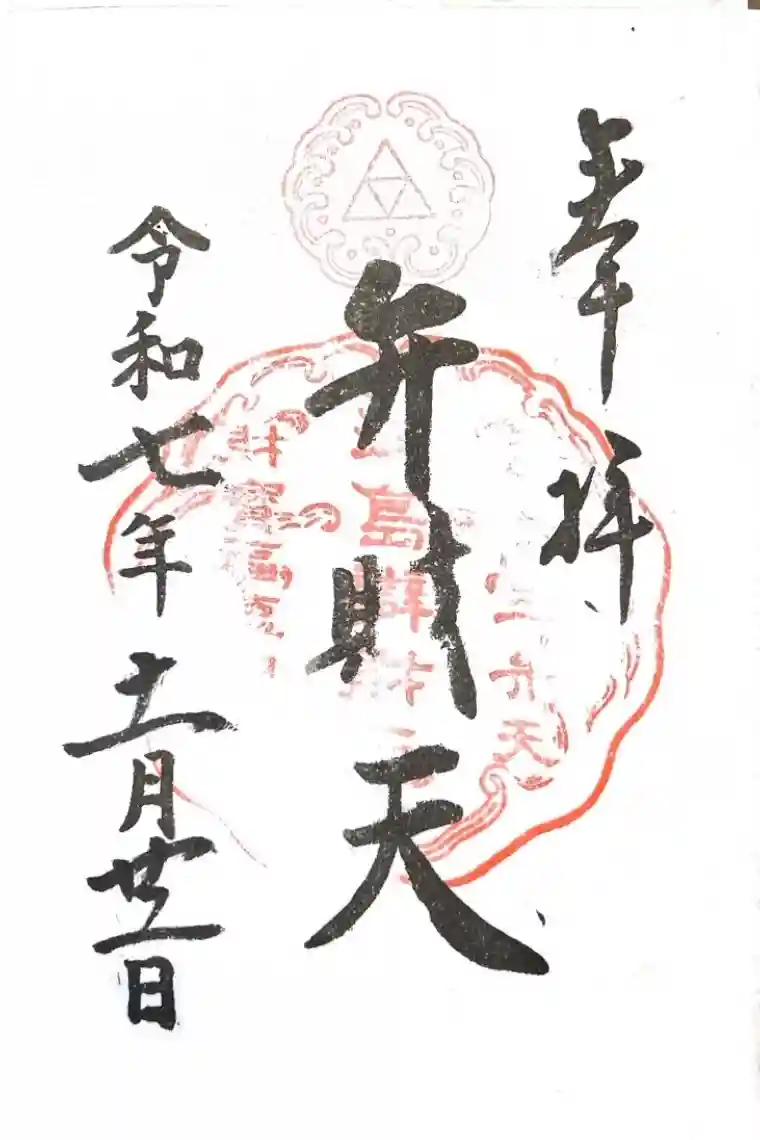 奉拝
弁財天
令和七年十一月廿二日
島辯財天
弁天